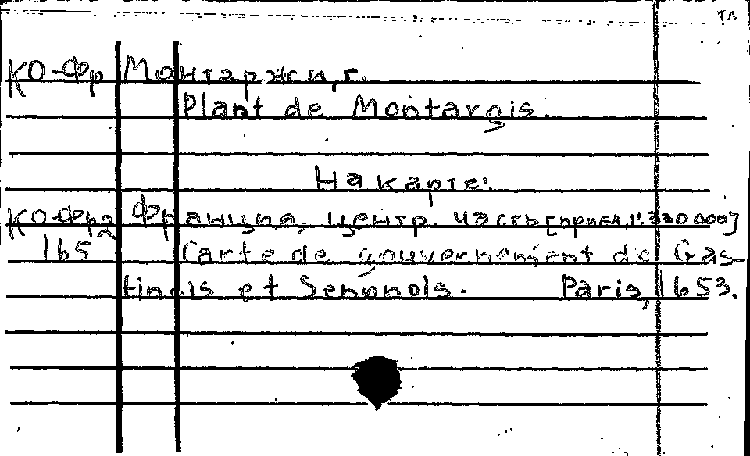 КО-Фр Монтаржи, г.
Plant de Montargis.
На карте:
КО-Фр2 Франция, центр. часть [прибл. 1:330 000]
165 Carte de gouvernement de Gas-
tinois et Senonois. Paris, 1653.